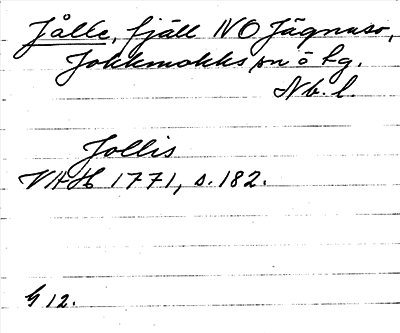 Jålle, fjäll NO Jägnaso,
Jokkmokks sn o tg.
Nb. l.
Jollis
VAH 1771, s. 182.
G 12.